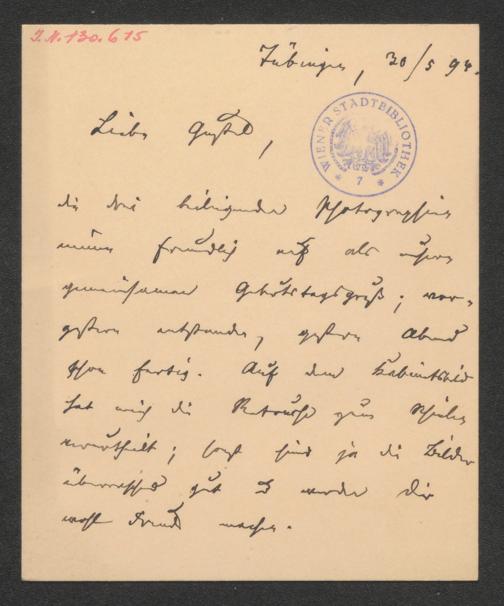 I.N. 130.615
Tübingen, 30/5 94.
WIENER STADTBIBLIOTHEK
7
Lieber Gustel,
die drei beiliegenden Photographien
nimm freundlich auf als unsern
gemeinsamen Geburtstagsgruß; vor-
gestern entstanden, gestern Abend
schon fertig. Auf dem Kabinetsbild
hat mich die Retouche zum Schielen
verurtheilt; sonst sind ja die Bilder
überraschend gut & werden Dir
wohl Freude machen.